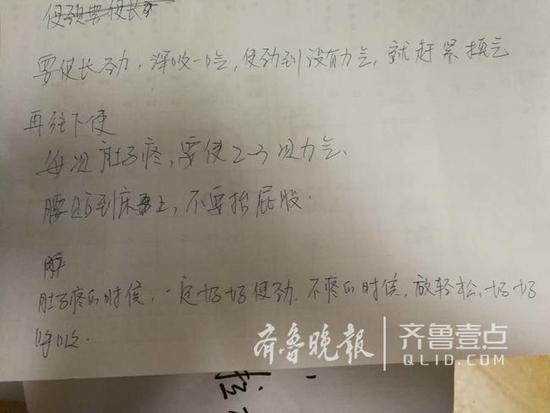 要使长劲，深吸一口气，使劲到没有力气，就赶紧换气
再往下使
每次肚子疼，要使2-3次力气、
腰贴到床上，不要抬屁股.
肚子疼的时候，一定好好使劲.不疼的时候，放轻松，好好
呼吸.
齐鲁晚报
齐鲁壹点
QLID.COM